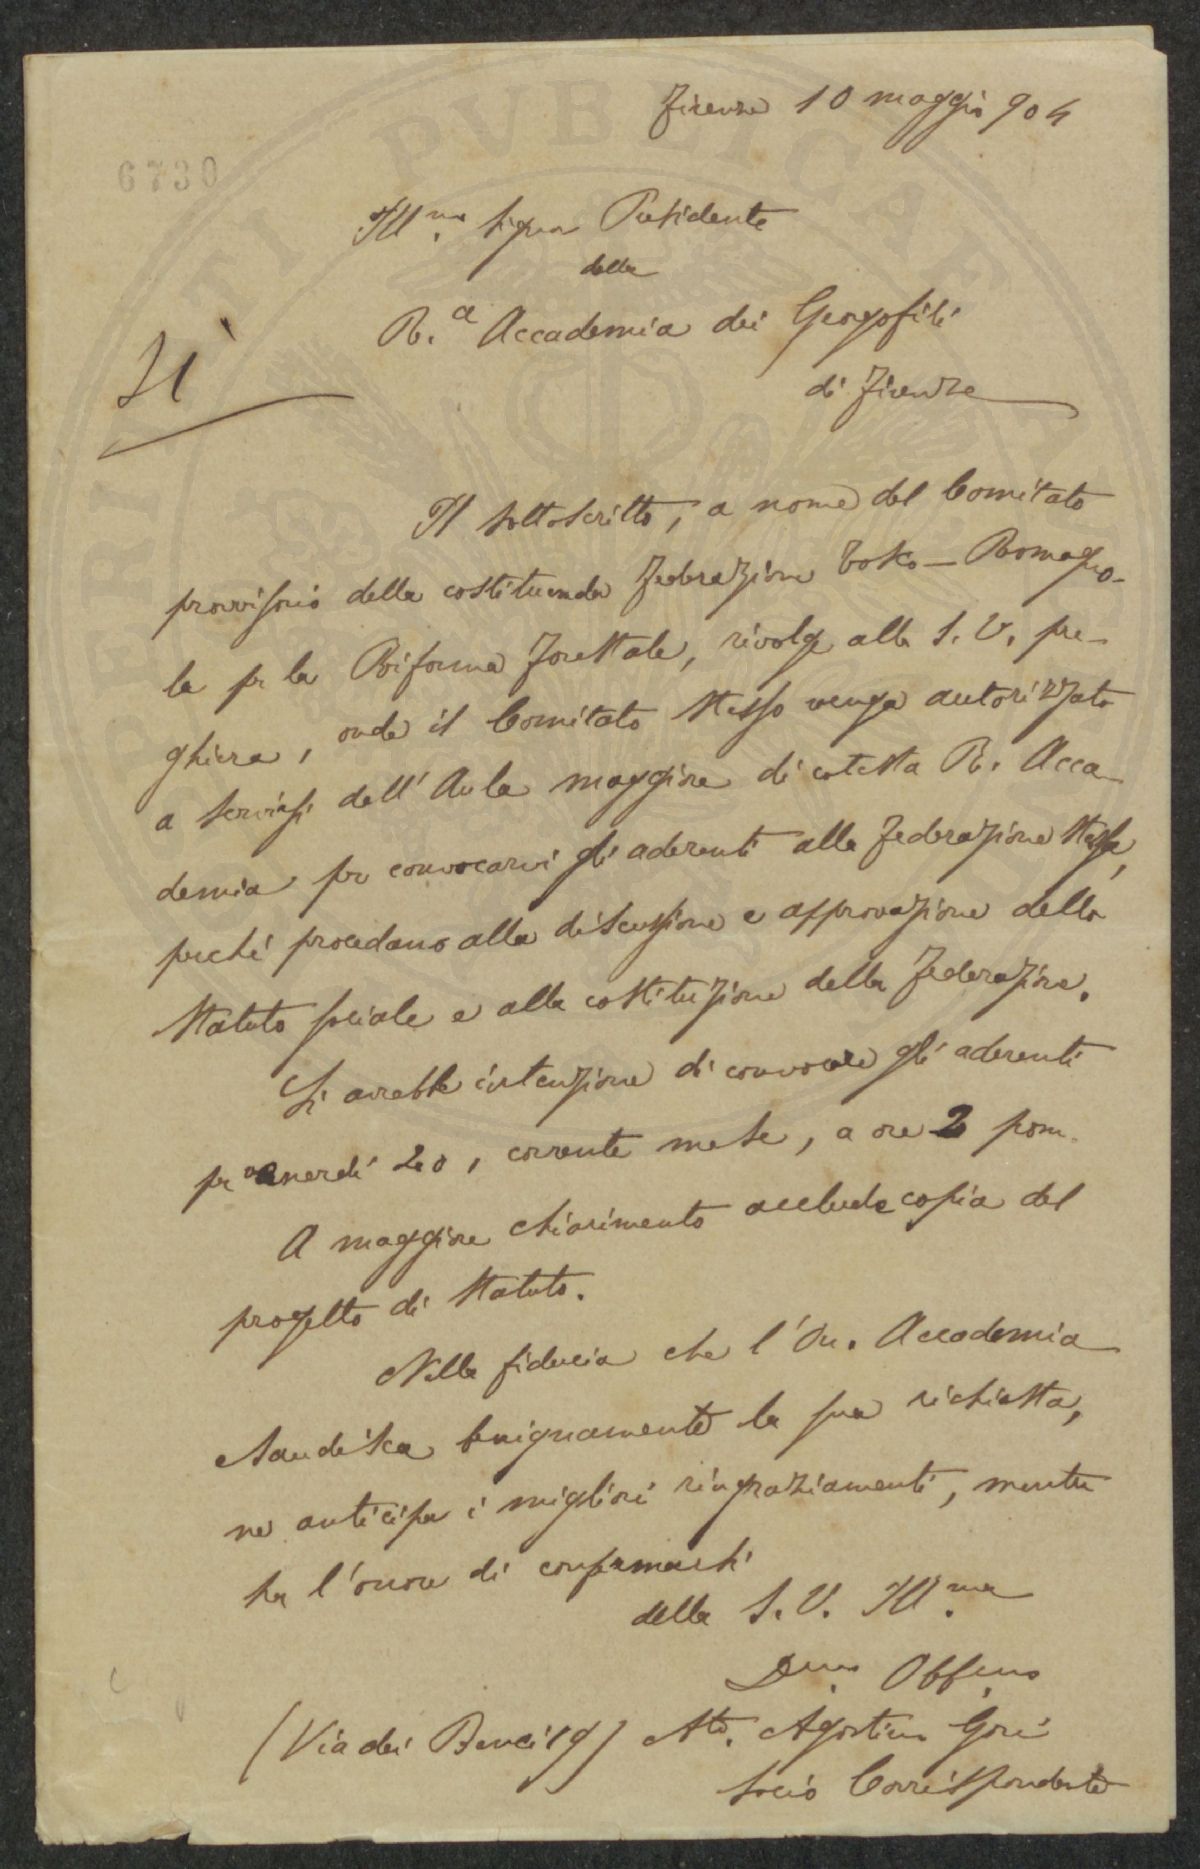 Firenze 10 maggio 904
6730
Ill.mo Signor Presidente
della
R.a Accademia dei Georgofili
di Firenze
Sì
Il sottoscritto, a nome del Comitato
provvisorio della costituenda Federazione Tosco-Romagno-
la per la Riforma Forestale, rivolge alla S. V. pre-
ghiera, onde il Comitato stesso venga autorizzato
a servirsi dell'Aula maggiore di cotesta R. Acca-
demia per convocarvi gli aderenti alla Federazione stessa,
perché procedano alla discussione e approvazione dello
Statuto sociale e alla costituzione della Federazione.
Si avrebbe intenzione di convocare gli aderenti
per venerdì 20, corrente mese, a ore 2 pom.
A maggiore chiarimento acclude copia del
progetto di Statuto.
Nella fiducia che l'On. Accademia
esaudisca benignamente la sua richiesta,
ne anticipa i migliori ringraziamenti, mentre
ha l'onore di confermarsi
della S. V. Ill.ma
Dev.mo Obb.mo
(Via dei Benci 19) Agostino Gori
Socio Corrispondente